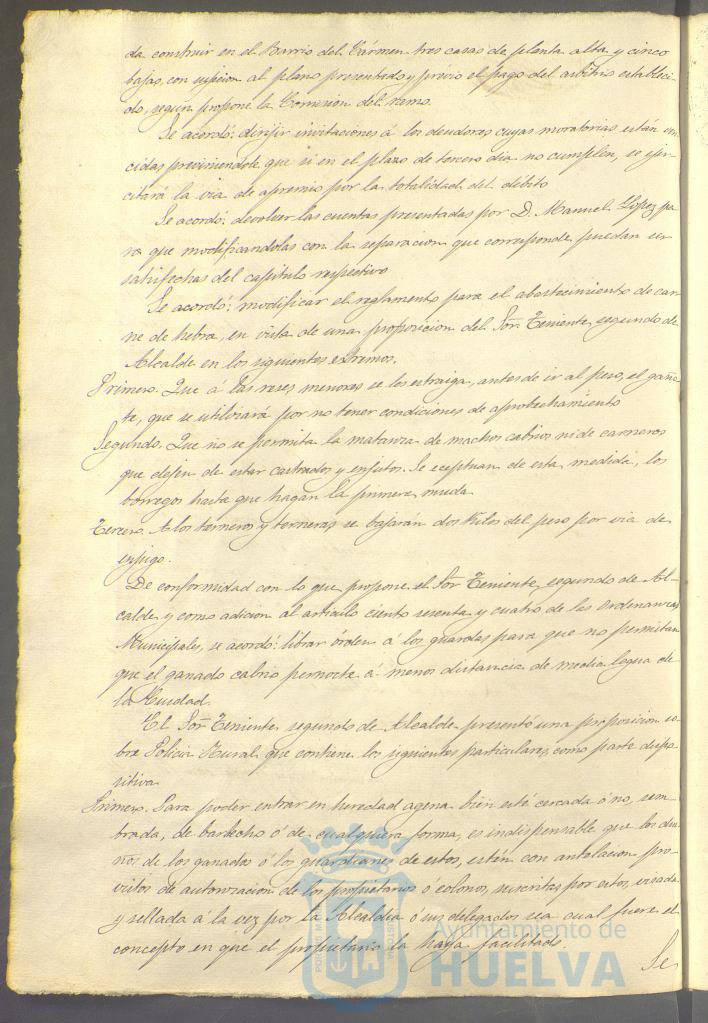 da construir en el Barrio del Cármen tres casas de planta alta y cinco
bajas, con sujecion al plano presentado y prévio el pago del arbitrio estableci-
do, segun propone la Comision del ramo.
Se acordó: dirijir invitaciones á los deudores cuyas moratorias están ven-
cidas previniendole que si en el plazo de tercero dia no cumplen, se ejer-
citará la via de apremio por la totalidad del débito
Se acordó: devolver las cuentas presentadas por D. Manuel López pa-
ra que modificandolas con la separacion que corresponde puedan ser
satisfechas del capitulo respectivo
Se acordó: modificar el reglamento para el abastecimiento de car-
ne de hebra, en vista de una proposicion del Sor. Teniente segundo de
Alcalde en los siguientes extremos.
Primero. Que á las reses menores se les estraiga, antes de ir al peso, el gaño-
te, que se utilizará por no tener condiciones de aprobechamiento
Segundo. Que no se permita la matanza de machos cabrios ni de carneros
que dejen de estar castrados y enjutos. Se eceptuan de esta medida, los
borregos hasta que hagan la primera muda
Tercero. A los terneros y terneras se bajarán dos Kilos del peso por via de
enjugo.
De conformidad con lo que propone el Sor. Teniente segundo de Al-
calde y como adicion al articulo ciento sesenta y cuatro de las Ordenanzas
Municipales, se acordó: librar órden á los guardas para que no permitan
que el ganado cabrio pernocte á menos distancia de media legua de
la Ciudad.
El Sor. Teniente segundo de Alcalde presentó una proposicion so-
bre Policia Rural que contiene los siguientes particulares, como parte dispo-
sitiva
Primero. Para poder entrar en heredad agena bien esté cercada ó no, sem-
brada, de barbecho ó de cualquiera forma, es indispensable que los due-
ños de los ganados ó los guardianes de estos, estén con antelacion pro-
vistos de autorizacion de los propietarios ó colonos, suscritas por estos, visada
y sellada á la vez por la Alcaldia ó sus delegados sea cual fuere el
concepto en que el propietario la haya facilitado.
Se
Ayuntamiento de
HUELVA